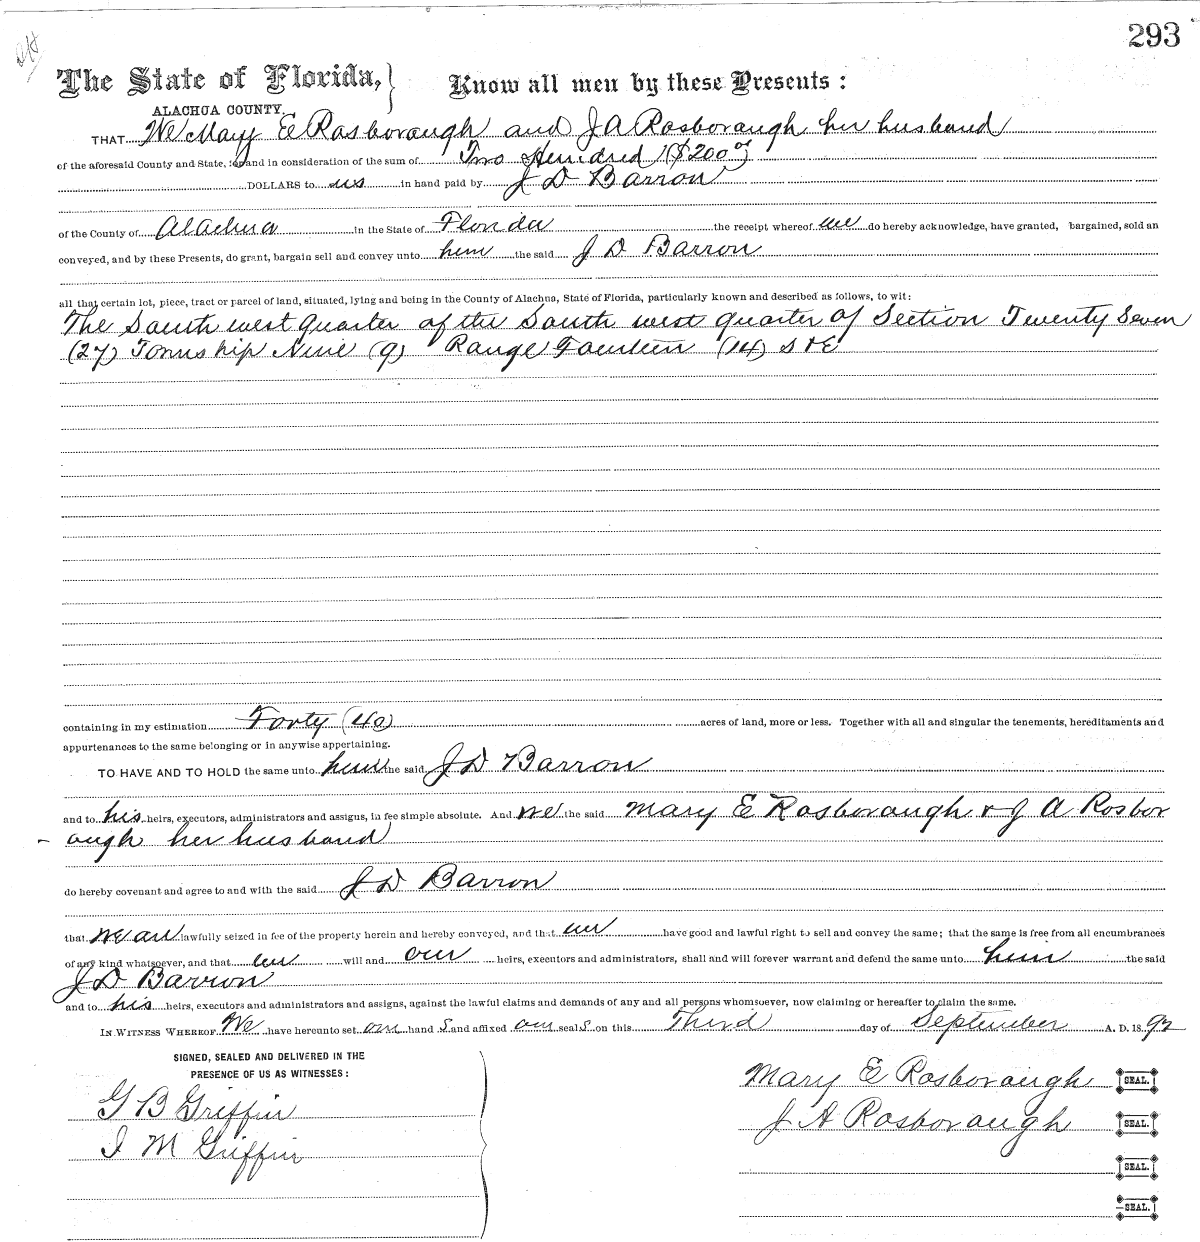 293
The State of Florida, } Know all men by these Presents :
ALACHUA COUNTY.
THAT We Mary E Rosborough and J A Rosborough her husband
of the aforesaid County and State, for and in consideration of the sum of Two Hundred ($200 00)
DOLLARS to us in hand paid by J D Barron
of the County of Alachua in the State of Florida the receipt whereof we do hereby acknowledge, have granted, bargained, sold an
conveyed, and by these Presents, do grant, bargain sell and convey unto him the said J D Barron
all that certain lot, piece, tract or parcel of land, situated, lying and being in the County of Alachua, State of Florida, particularly known and described as follows, to wit:
The South west Quarter of the South west quarter of Section Twenty Seven
(27) Township Nine (9) Range Fourteen (14) S & E
containing in my estimation Forty (40) acres of land, more or less. Together with all and singular the tenements, hereditaments and
appurtenances to the same belonging or in anywise appertaining.
TO HAVE AND TO HOLD the same unto him the said J D Barron
and to his heirs, executors, administrators and assigns, in fee simple absolute. And we the said Mary E Rosborough & J A Rosbor
- ough her husband
do hereby covenant and agree to and with the said J D Barron
that we are lawfully seized in fee of the property herein and hereby conveyed, and that we have good and lawful right to sell and convey the same; that the same is free from all encumbrances
of any kind whatsoever, and that we will and our heirs, executors and administrators, shall and will forever warrant and defend the same unto him the said
J D Barron
and to his heirs, executors and administrators and assigns, against the lawful claims and demands of any and all persons whomsoever, now claiming or hereafter to claim the same.
IN WITNESS WHEREOF We have hereunto set our hand s and affixed our seal s on this Third day of September A. D. 18 92
SIGNED, SEALED AND DELIVERED IN THE
PRESENCE OF US AS WITNESSES :
G B Griffin
I M Griffin
Mary E Rosborough SEAL.
J A Rosborough SEAL.
SEAL.
SEAL.